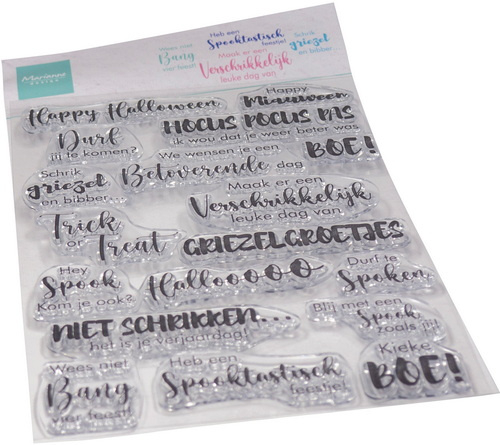 Marianne
DESIGN
Wees niet
Bang
vier feest!
Heb een
Spooktastisch
feestje!
Maak er een
Verschrikkelijk
leuke dag van
Schrik
griezel
en bibber
Happy Halloween
Happy
Miauween
Durf
jij te komen?
HOCUS POCUS PAS
ik wou dat je weer beter was
Schrik
griezel
en bibber
We wensen je een
Betoverende dag
BOE!
Maak er een
Verschrikkelijk
leuke dag van
Trick
or Treat
GRIEZELGROETJES
Hey
Spook
Kom je ook?
Hallooooo
Durf te
Spoken
NIET SCHRIKKEN...
het is je verjaardag!
Blij met een
Spook
zoals jij!
Wees niet
Bang
vier feest!
Heb een
Spooktastisch
feestje!
Kieke
BOE!